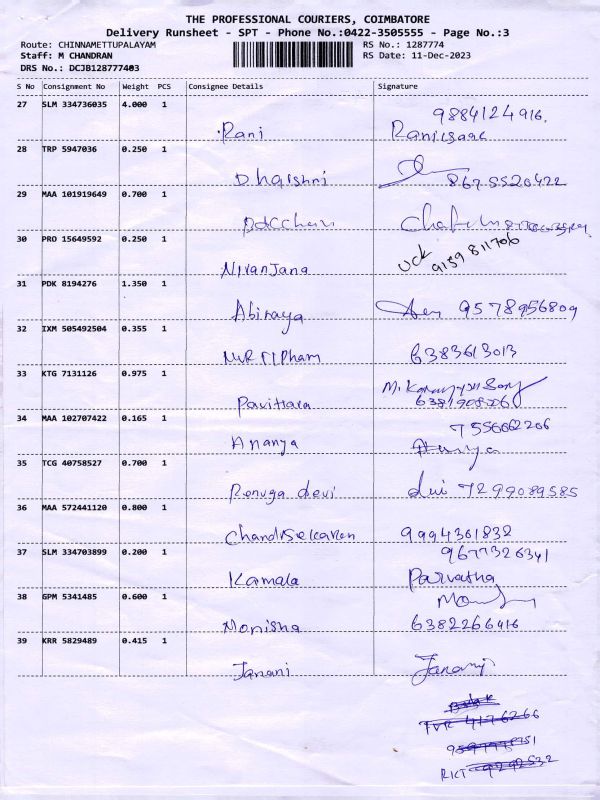 THE PROFESSIONAL COURIERS, COIMBATORE
Delivery Runsheet - SPT - Phone No.:0422-3505555 - Page No.:3
Route: CHINNAMETTUPALAYAM RS No.: 1287774
Staff: M CHANDRAN RS Date: 11-Dec-2023
DRS No.: DCJB128777403
S No Consignment No Weight PCS Consignee Details Signature
27 SLM 334736035 4.000 1
9884124916.
Rani
28 TRP 5947036 0.250 1
Dharshni 8675520422
29 MAA 101919649 0.700 1
30 PRO 15649592 0.250 1
UCK 9159811706
Nivanjana
31 PDK 8194276 1.350 1
Abiraya 9578956809
32 IXM 505492504 0.355 1
6383613013
33 KTG 7131126 0.975 1
Pavithara
34 MAA 102707422 0.165 1
7556662206
Ananya
35 TCG 40758527 0.700 1
Renuga devi devi 7299089585
36 MAA 572441120 0.800 1
Chandrsekaren 9994361832
37 SLM 334703899 0.200 1
9677326341
Kamala Parvatha
38 GPM 5341485 0.600 1
Monisha 6382266416
39 KRR 5829489 0.415 1
Janani Janani
TVR 4176266
RICT 9292532